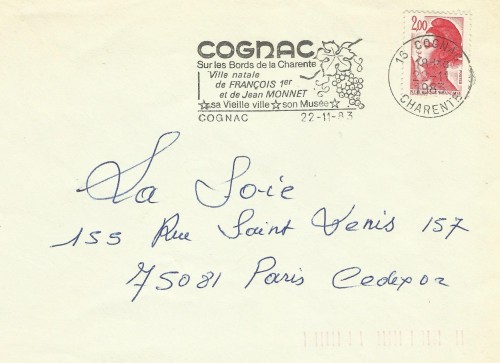 COGNAC
Sur les Bords de la Charente
Ville natale
de FRANÇOIS 1er
et de Jean MONNET
☆sa Vieille ville☆son Musée☆
COGNAC 22-11-83
2,00
16 COGNAC
CHARENTE
La Soie
155 Rue Saint Denis 157
75081 Paris Cedex 02